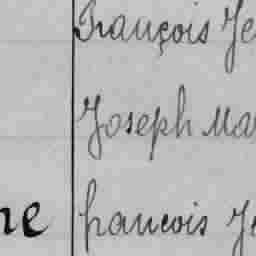 François Je
Joseph Ma
ne francois Je